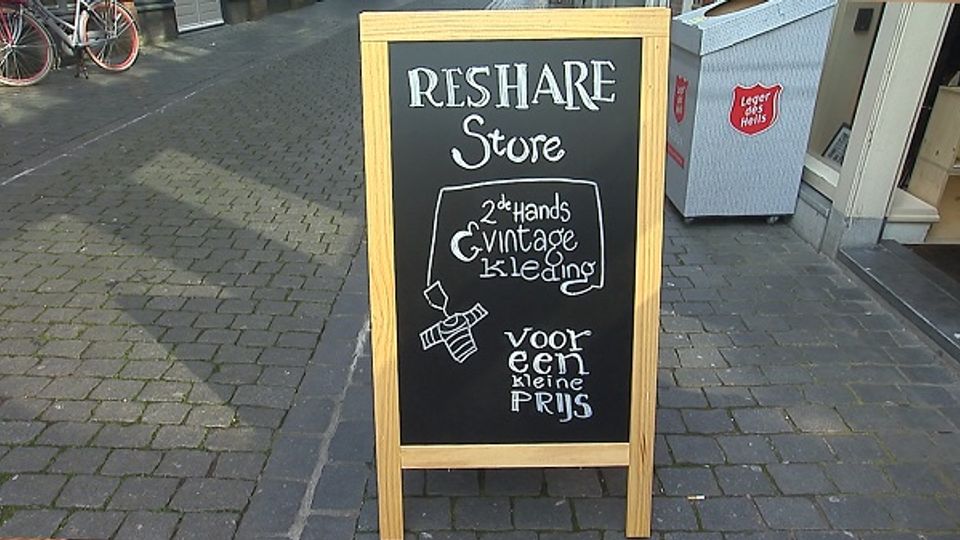 RESHARE
Store
2de Hands
& vintage
Kleding
voor
een
kleine
PRIJS
Leger
des
Heils